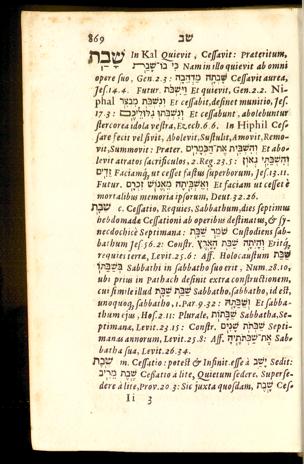 869 שב
שָׁבַת In Kal Quievit, Cessavit: Præteritum,
כִּי בוֹ שָׁבַת Nam in illo quievit ab omni
opere suo, Gen. 2.3: שָׁבְתָה מַדְהֵבָה Cessavit aurea,
Jes. 14.4. Futur. וַיִּשְׁבֹּת Et quievit, Gen. 2.2. Ni-
phal וְנִשְׁבַּת מִבְצָר Et cessabit, definet munitio, Jes.
17.3: וְנִשְׁבְּתוּ גִּלּוּלֵיכֶם Et cessabunt, abolebuntur
stercorea idola vestra, Ez. ch. 6.6. In Hiphil Cess-
are fecit vel sivit, Abolevit, Sustulit, Amovit, Remo-
vit, Summovit: Præter. וְהִשְׁבִּית אֶת־הַכְּמָרִים Et abo-
levit atratos sacrificulos, 2. Reg. 23.5: וְהִשְׁבַּתִּי גְּאוֹן
זֵדִים Faciamq́; ut cesset fastus superborum, Jes. 13.11.
Futur. אַשְׁבִּיתָה מֵאֱנוֹשׁ זִכְרָם Et faciam ut cesset è
mortalibus memoria ipsorum, Deut. 32.26.
שַׁבָּת c. Cessatio, Requies, Sabbathum, dies septimus
hebdomadæ Cessationi ab operibus destinatus, & sy-
necdochicè Septimana: שֹׁמֵר שַׁבָּת Custodiens sab-
bathum Jes. 56.2: Constr. וְהָיְתָה שַׁבַּת הָאָרֶץ Eritq́;
requies terra, Levit. 25.6: Aff. Holocaustum שַׁבַּת
בְּשַׁבַּתּוֹ Sabbathi in sabbatho suo erit, Num. 28.10,
ubi prius in Pathach definit extra constructionem,
cui simile illud שַׁבַּת שַׁבָּת Sabbatho, sabbatho, id est,
unoquoq́; sabbatho, 1. Par. 9.32: Et sabba-
thum ejus, Hos. 2.11: Plurale, שַׁבָּתוֹת Sabbatha. Se-
ptimana, Levit. 23.15: Constr. שַׁבְּתֹת שָׁנִים Septi-
manas annorum, Levit. 25.8: Aff. אֶת־שַׁבְּתֹתֶיהָ Sab-
batha sua, Levit. 26.34.
שֶׁבֶת m. Cessatio: potest & Infinit. esse à יָשַׁב Sedit:
שֶׁבֶת מֵרִיב Cessatio à lite, Quietum sedere. Superse-
dere à lite, Prov. 20.3: Sic juxta quosdam, שֶׁבֶת
Ii 3